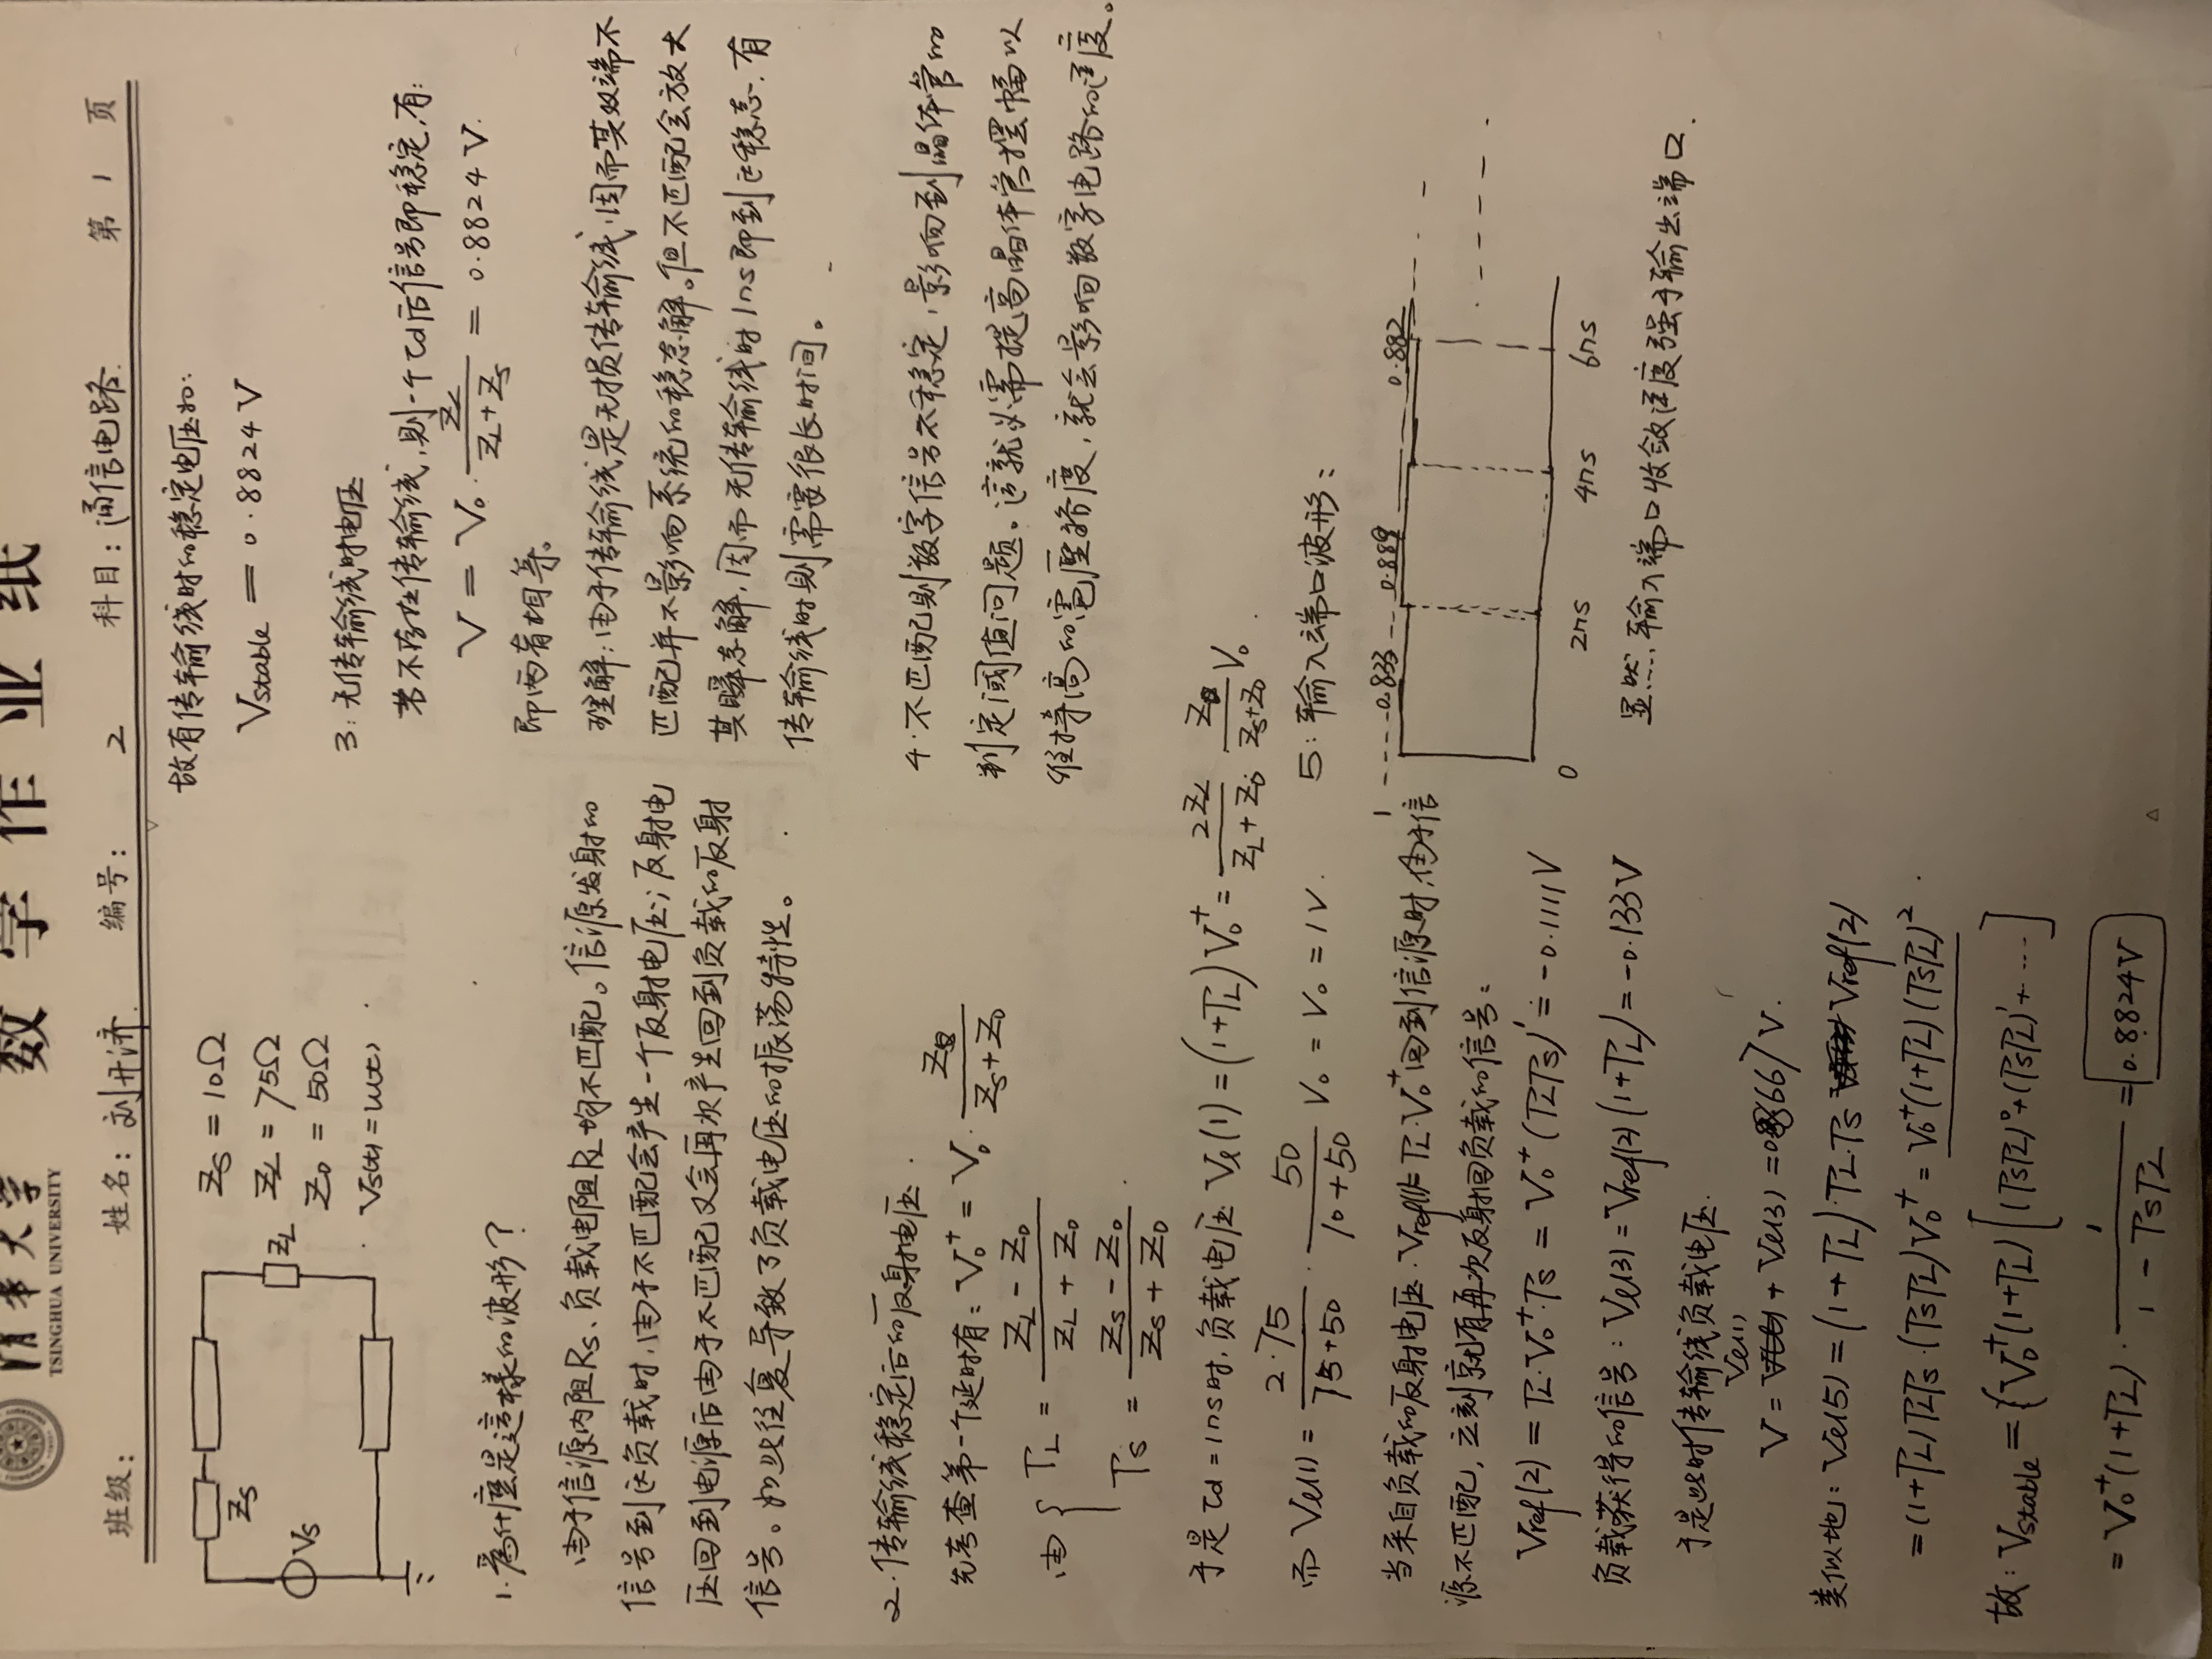 清华大学
TSINGHUA UNIVERSITY
数学作业纸
班级: 姓名: 刘开济. 编号: 2 科目: 通信电路. 第 1 页
Zs
Vs
ZL
Zs = 10Ω
ZL = 75Ω
Z0 = 50Ω
Vs(t) = u(t)
1. 為什麼是這樣的波形?
由于信源内阻Rs、负载电阻RL均不匹配。信源发射的
信号到达负载时,由于不匹配会产生一个反射电压;反射电
压回到电源后由于不匹配又会再次产生回到负载的反射
信号。如此往复导致了负载电压的振荡特性。
2. 传输线稳定后的反射电压.
先考查第一个延时有: V0⁺ = V0 · Z0/(Zs+Z0)
由 { ΓL = (ZL - Z0)/(ZL + Z0)
Γs = (Zs - Z0)/(Zs + Z0)
于是 τd = 1ns时,负载电压 Vl(1) = (1+ΓL) V0⁺ = 2ZL/(ZL+Z0) Z0/(Zs+Z0) V0.
而 Vl(1) = 2·75/(75+50) · 50/(10+50) V0 = V0 = 1V.
当来自负载的反射电压 Vref(1) = ΓL·V0⁺ 回到信源时,由于信
源不匹配,立刻就有再次反射回负载的信号:
Vref(2) = ΓL·V0⁺·Γs = V0⁺(ΓLΓs)¹ = -0.1111V
负载获得的信号: Vl(3) = Vref(2)(1+ΓL) = -0.133V
于是此时传输线负载电压.
V = Vl(1) + Vl(3) = 0.8667V.
类似地: Vl(5) = (1+ΓL)·ΓL·Γs Vref(2)
= (1+ΓL)ΓLΓs·(ΓsΓL)V0⁺ = V0⁺(1+ΓL)(ΓsΓL)².
故: Vstable = {V0⁺(1+ΓL)[(ΓsΓL)⁰+(ΓsΓL)¹+----]
= V0⁺(1+ΓL)· 1/(1 - ΓsΓL) = 0.8824V
故有传输线时的稳定电压如:
Vstable = 0.8824V
3: 无传输线时电压
若不存在传输线,则一个τd后信号即稳定,有:
V = V0 · ZL/(ZL+Zs) = 0.8824V.
即两者相等。
理解:由于传输线是无损传输线,因而其双端不
匹配并不影响系统的稳态解。但不匹配会放大
其瞬态解,因而无传输线时1ns即到达稳态.有
传输线时则需要很长时间。
4. 不匹配则数字信号不稳定,影响到晶体管的
判定阈值问题。這就必需提高晶体管摆幅以
维持高的電壓裕度,就会影响数字电路的速度。
5: 输入端口波形:
1 0.833 0.889 0.882
0 2ns 4ns 6ns
显然,输入端口收敛速度强于输出端口.